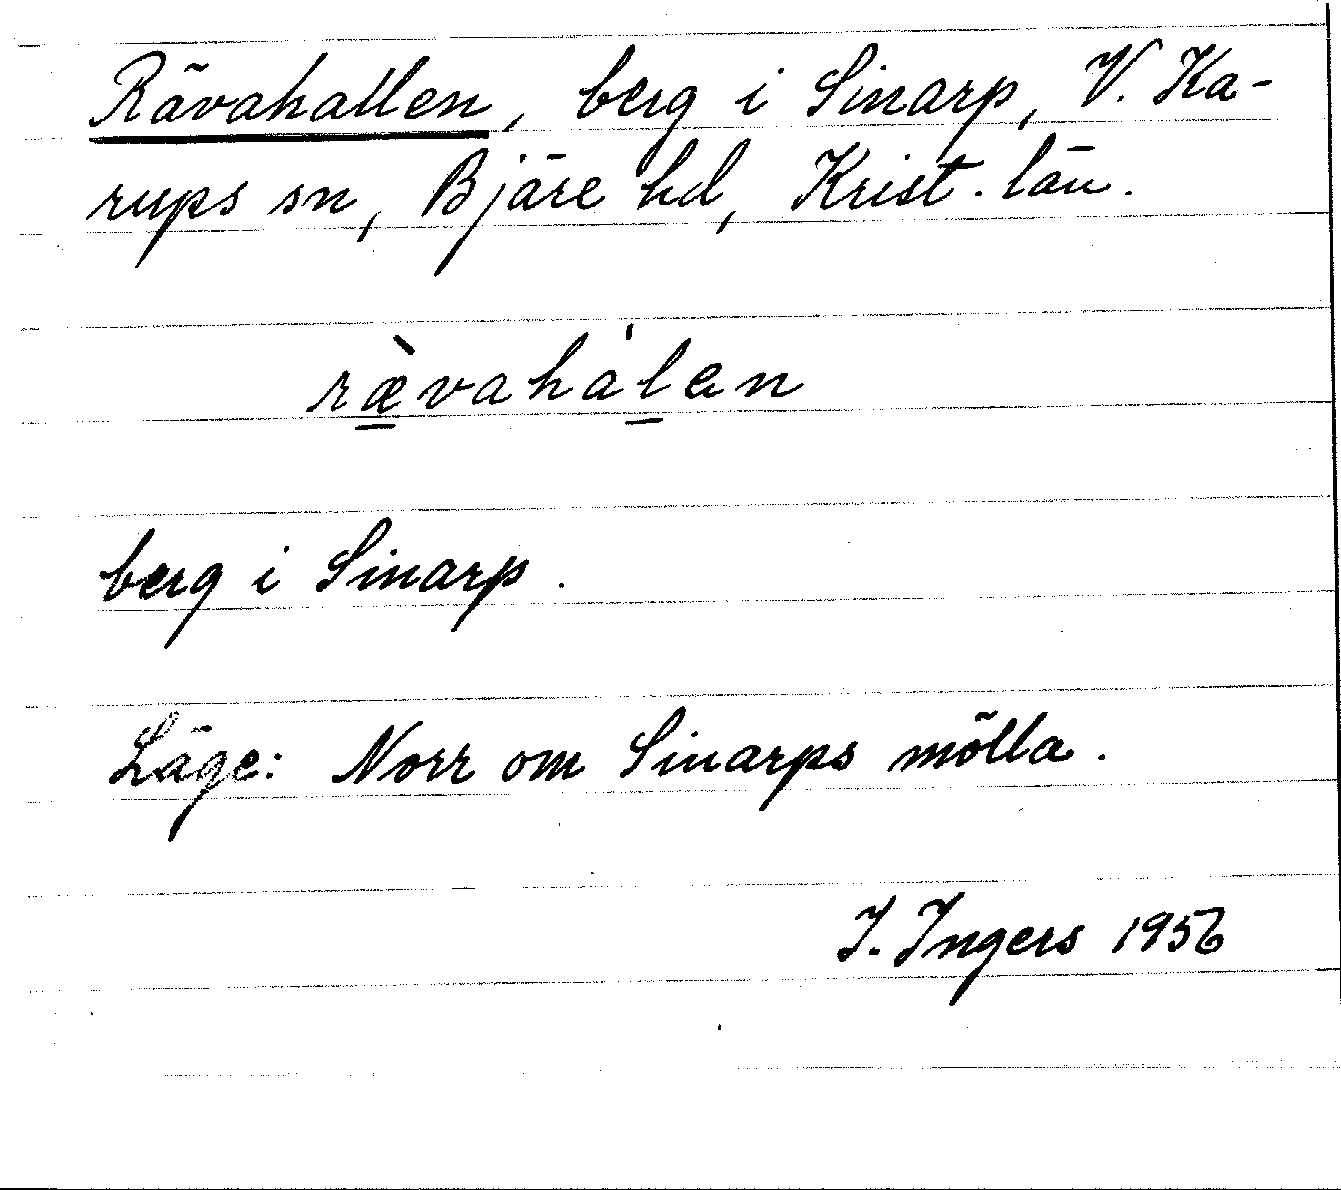 Rävahallen, berg i Sinarp, V. Ka-
rups sn, Bjäre hd, Krist. län.
ræ̀vahàlen
berg i Sinarp.
Läge: Norr om Sinarps mölla.
I. Ingers 1956